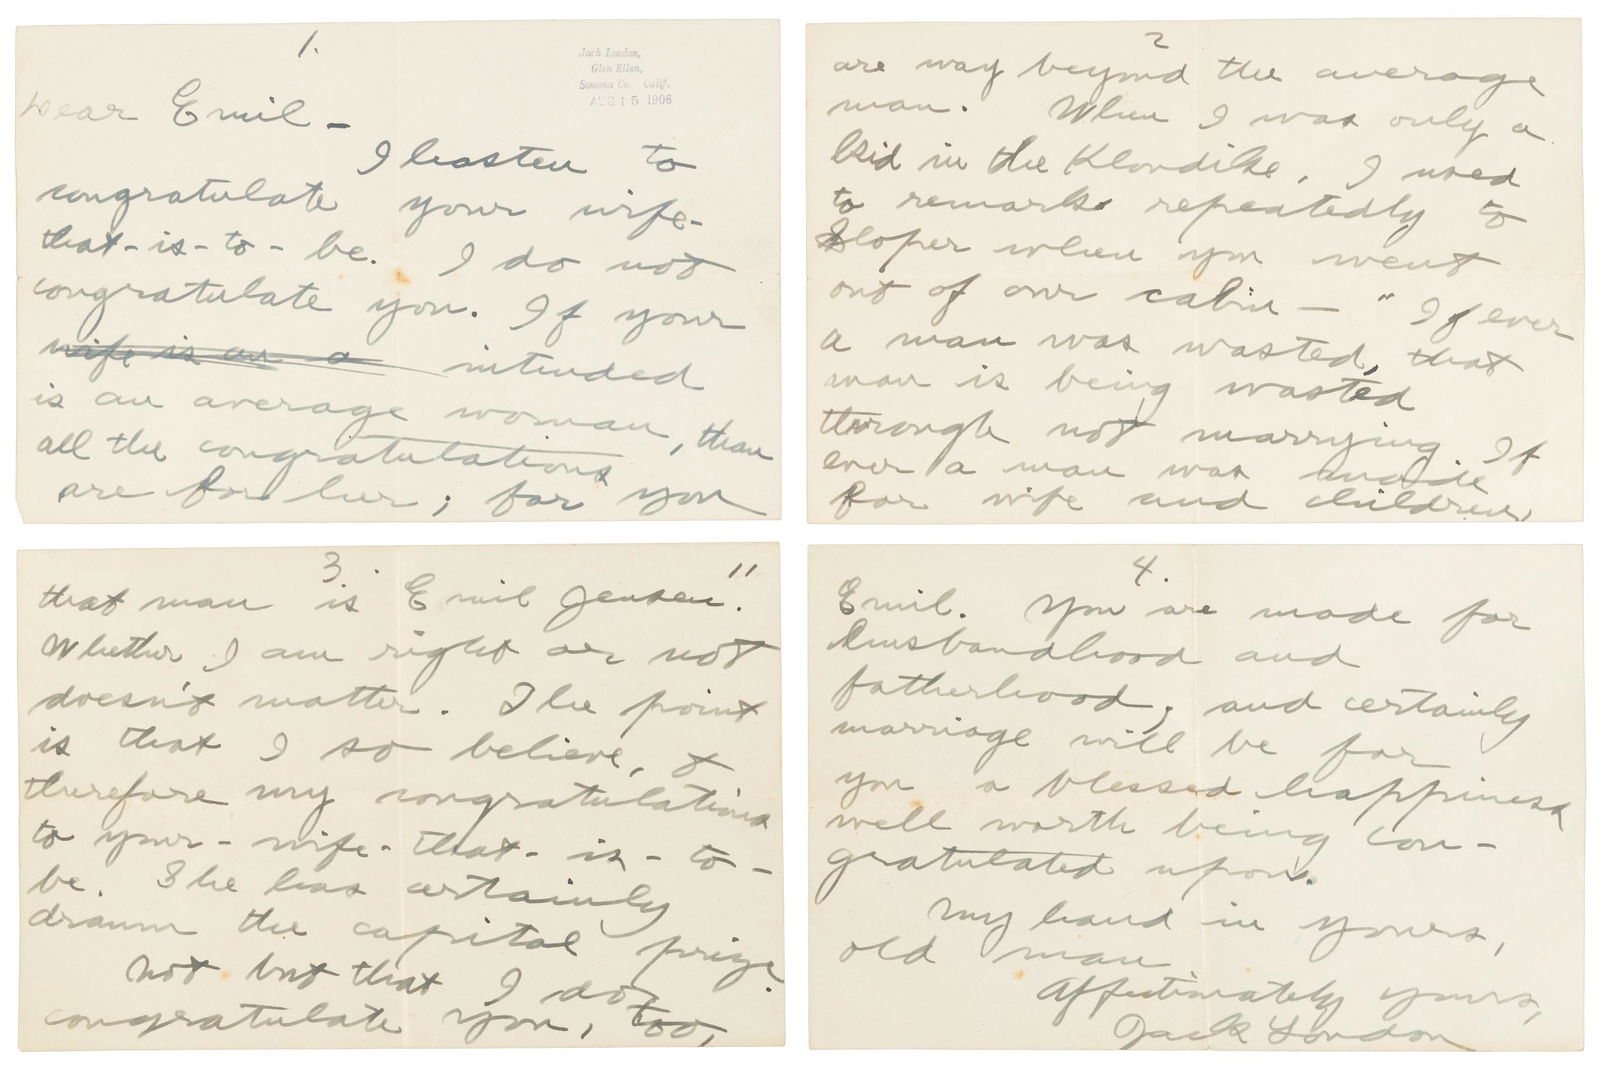 1.
Jack London,
Glen Ellen,
Sonoma Co. Calif.
AUG 15 1906
Dear Emil -
I hasten to
congratulate your wife-
that-is-to-be. I do not
congratulate you. If your
wife is an a intended
is an average woman, then
all the congratulations
are for her; for you
2
are way beyond the average
man. When I was only a
kid in the Klondike, I used
to remark repeatedly to
Sloper when you went
out of our cabin — "If ever
a man was wasted, that
man is being wasted
through not marrying If
ever a man was made
for wife and children,
3.
that man is Emil Jensen."
Whether I am right or not
doesn't matter. The point
is that I so believe, &
therefore my congratulations
to your-wife-that-is-to-
be. She has certainly
drawn the capital prize.
Not but that I do
congratulate you, too,
4.
Emil. You are made for
husbandhood and
fatherhood; and certainly
marriage will be for
you a blessed happiness
well worth being con-
gratulated upon.
My hand in yours,
old man
Affectionately yours,
Jack London